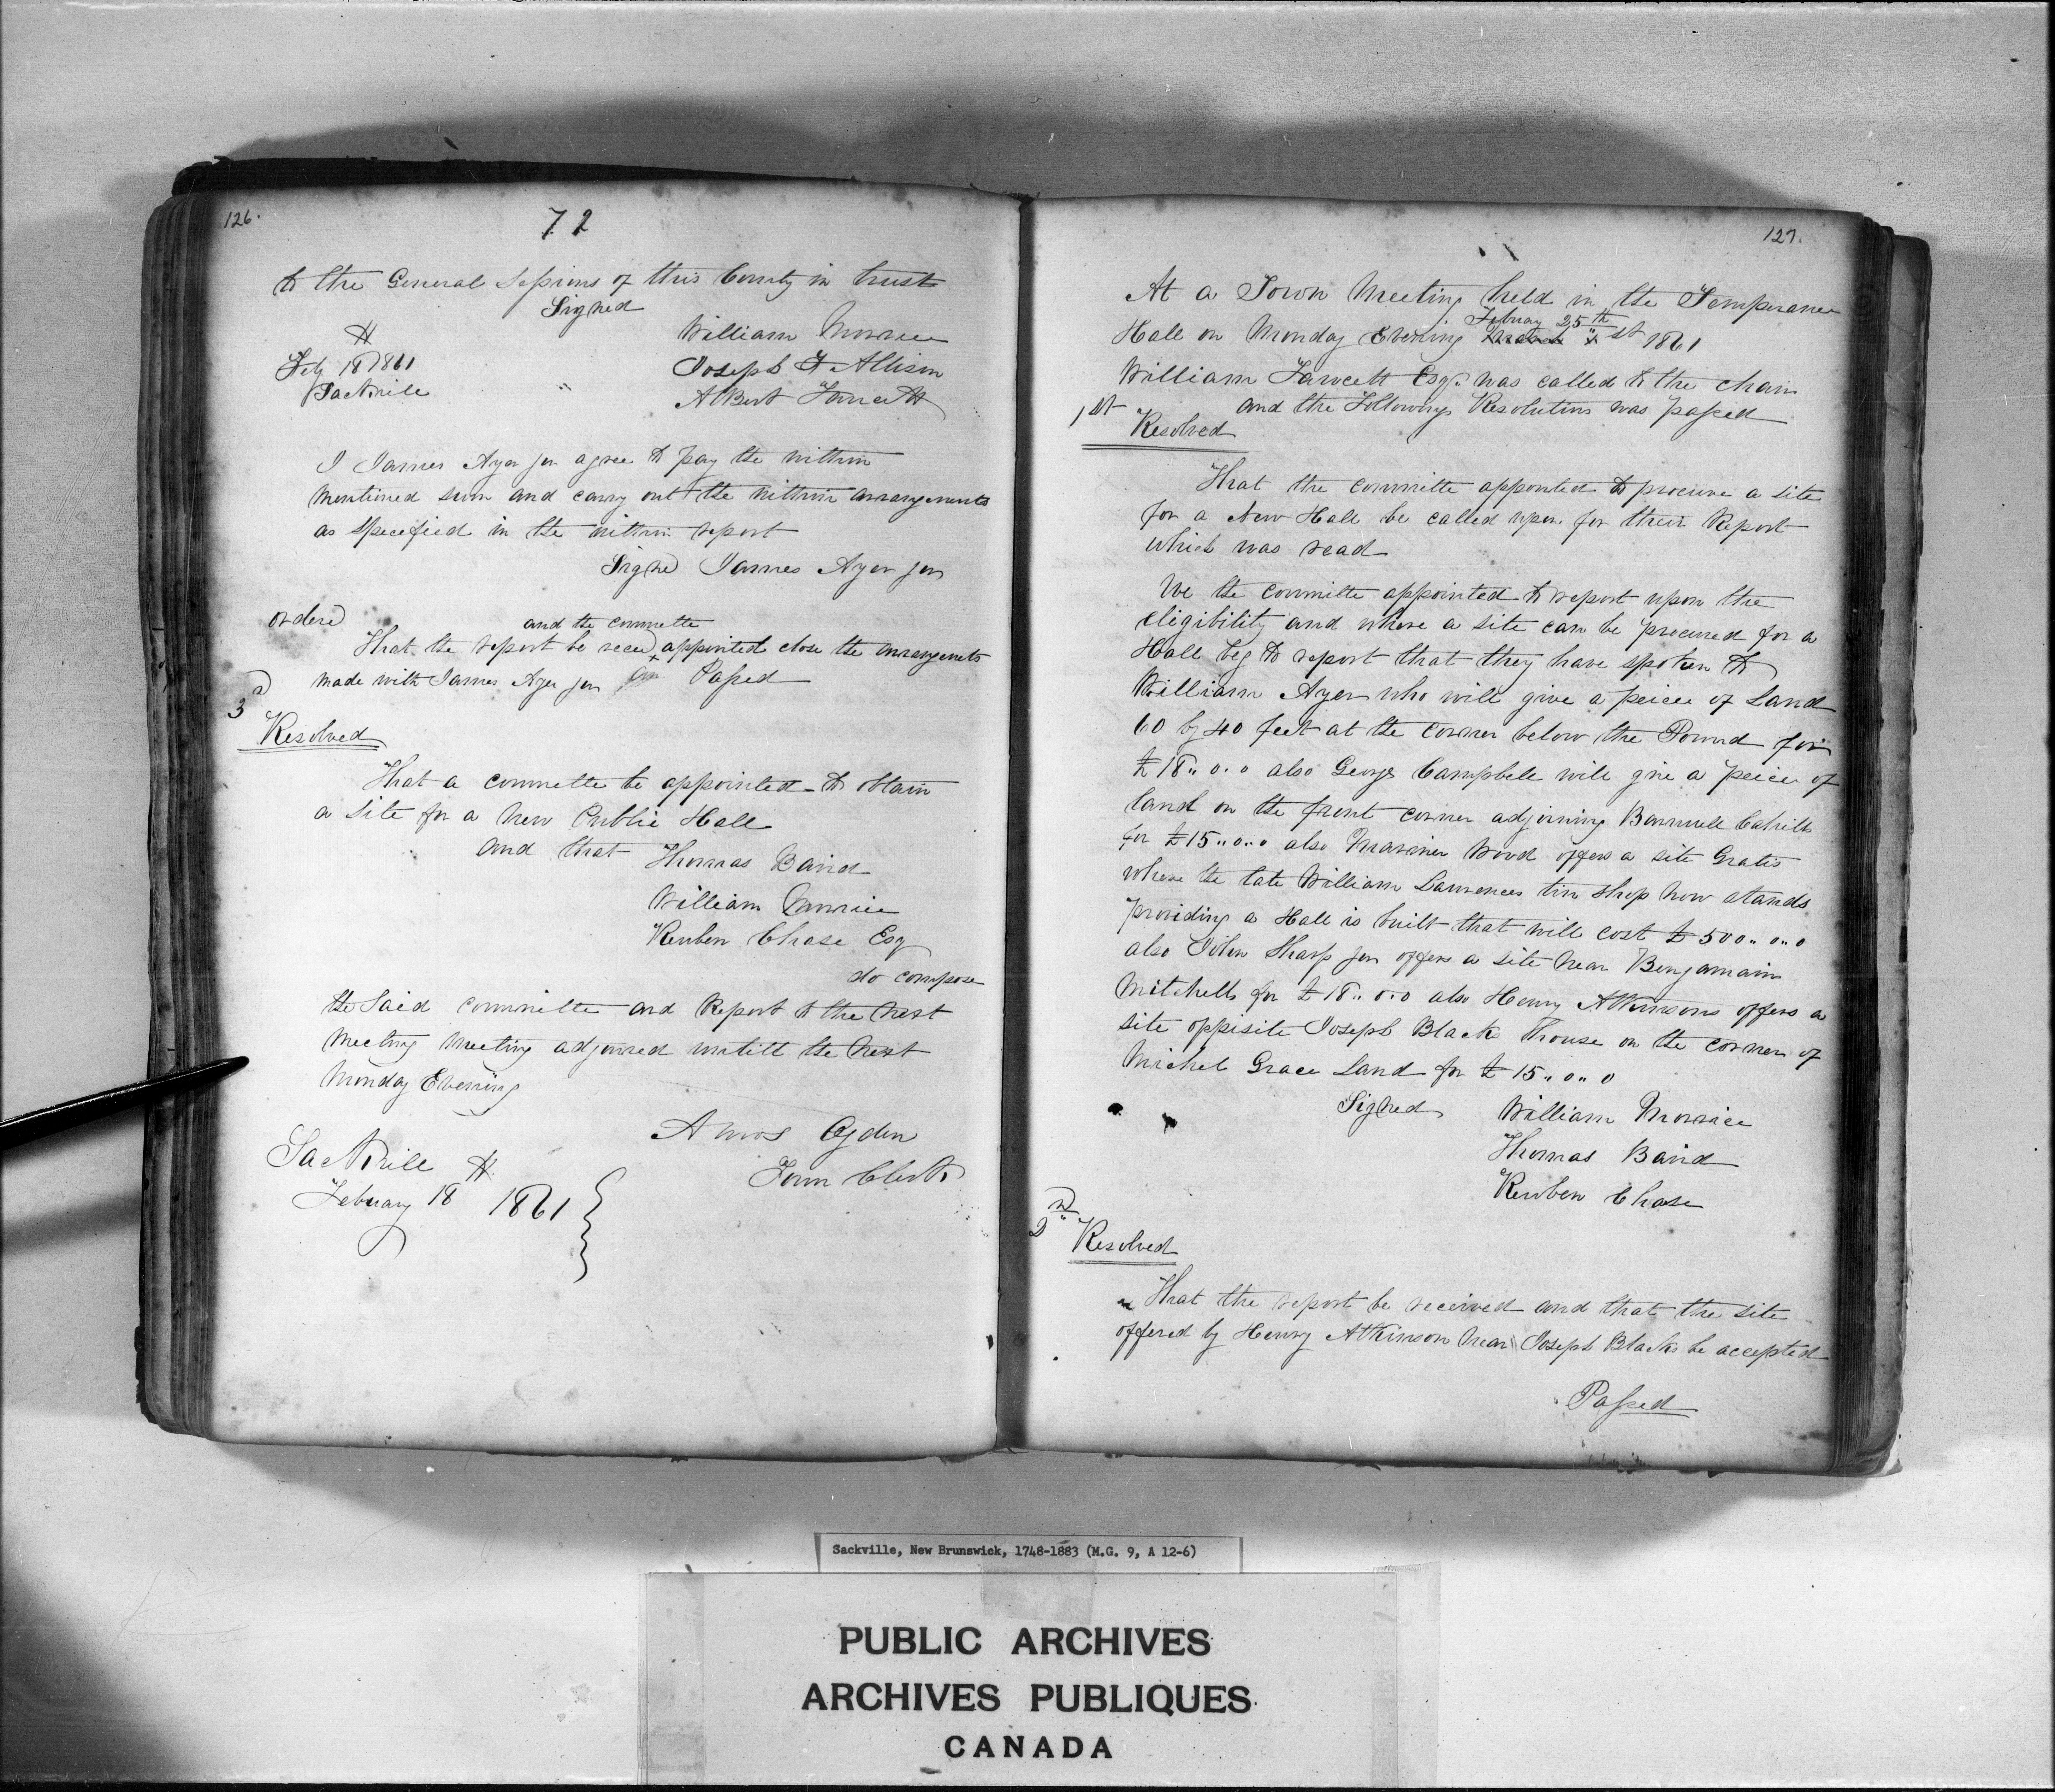 126.
72
to the General Sessions of this County in trust
Signed
William Morrice
th
Feby 18 1861
Joseph F Allison
Sackville
Albert Fawcett
I James Ayer jun agree to pay the within
mentioned sum and carry out the within arrangements
as specified in the within report
Signed James Ayer jun
ordered
and the committe
That the report be received appointed close the arrangements
made with James Ayer jun Passed
3d
Resolved
That a committe be appointed to obtain
a site for a New Public Hall
and that Thomas Baird
William Morrice
Reuben Chase Esq
do compose
the Said committe and Report to the Next
Meeting Meeting adjourned untill the Next
Monday Evening
Amos Ogden
Town Clerk
Sackville
th
Febuary 18 1861
127.
At a Town Meeting held in the Temperance
Febuary 25th
Hall on Monday Evening March st 1861
William Fawcett Esqr was called to the chair
and the Followng Resolutins was passed
1st
Resolved
That the committe apponted to procure a site
for a New Hall be called upon for their Report
which was read
We the committe appointed to report upon the
eligibility and where a site can be procured for a
Hall beg to report that they have spoken to
William Ayer who will give a peice of Land
60 by 40 feet at the corner below the Pound for
£18..0.0 also George Campbell will give a peice of
land on the front corner adjoining Barnwell Cahills
for £15..0..0 also Mariner Wood offers a site Gratis
where the late William Lawrences tin Shop now stands
providing a Hall is built that will cost £500..0..0
also John Sharp jun offers a site near Bengamain
Mitchells for £18..0.0 also Henry Atkinsons offers a
site oppisite Joseph Blacks house on the corner of
Michel Grace Land for £15..0..0
Signed William Morrice
Thomas Baird
Reuben Chase
2nd
Resolved
That the report be received and that the site
offered by Henry Atkinson near Joseph Blacks be accepted
Passed
Sackville, New Brunswick, 1748-1883 (M.G. 9, A 12-6)
PUBLIC ARCHIVES
ARCHIVES PUBLIQUES
CANADA